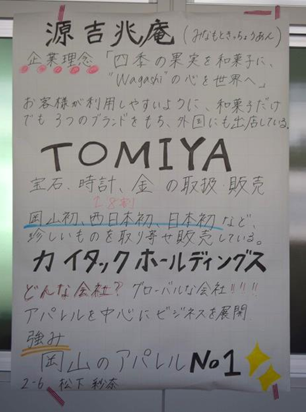 源吉兆庵(みなもときっちょうあん)
企業理念「四季の果実を和菓子に、
"Wagashi"の心を世界へ」
お客様が利用しやすいように、和菓子だけ
でも3つのブランドをもち、外国にも出店している。
TOMIYA
宝石、時計、金の取扱・販売
岡山初、西日本初、日本初など、
珍しいものを取り寄せ販売している。
カイタックホールディングス
どんな会社?グローバルな会社!!!!
アパレルを中心にビジネスを展開
強み
岡山のアパレルNo1
2-6 松下